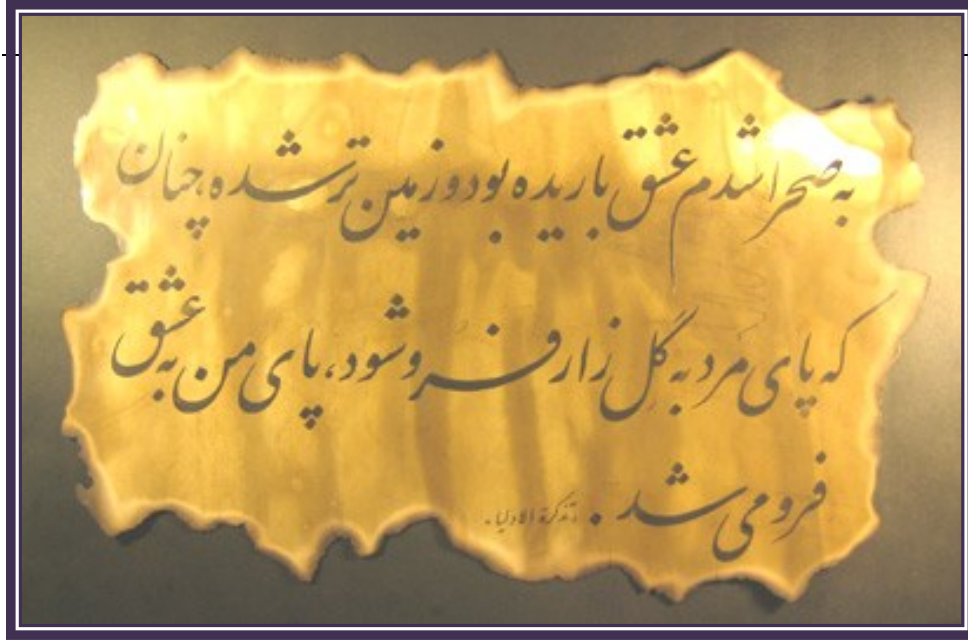 به صحرا شدم عشق باریده بود و زمین تر شده، چنان
که پای مَرد به گِل زار فرو شود، پای من به عشق
فرو می شد. تذکرة الاولیا.